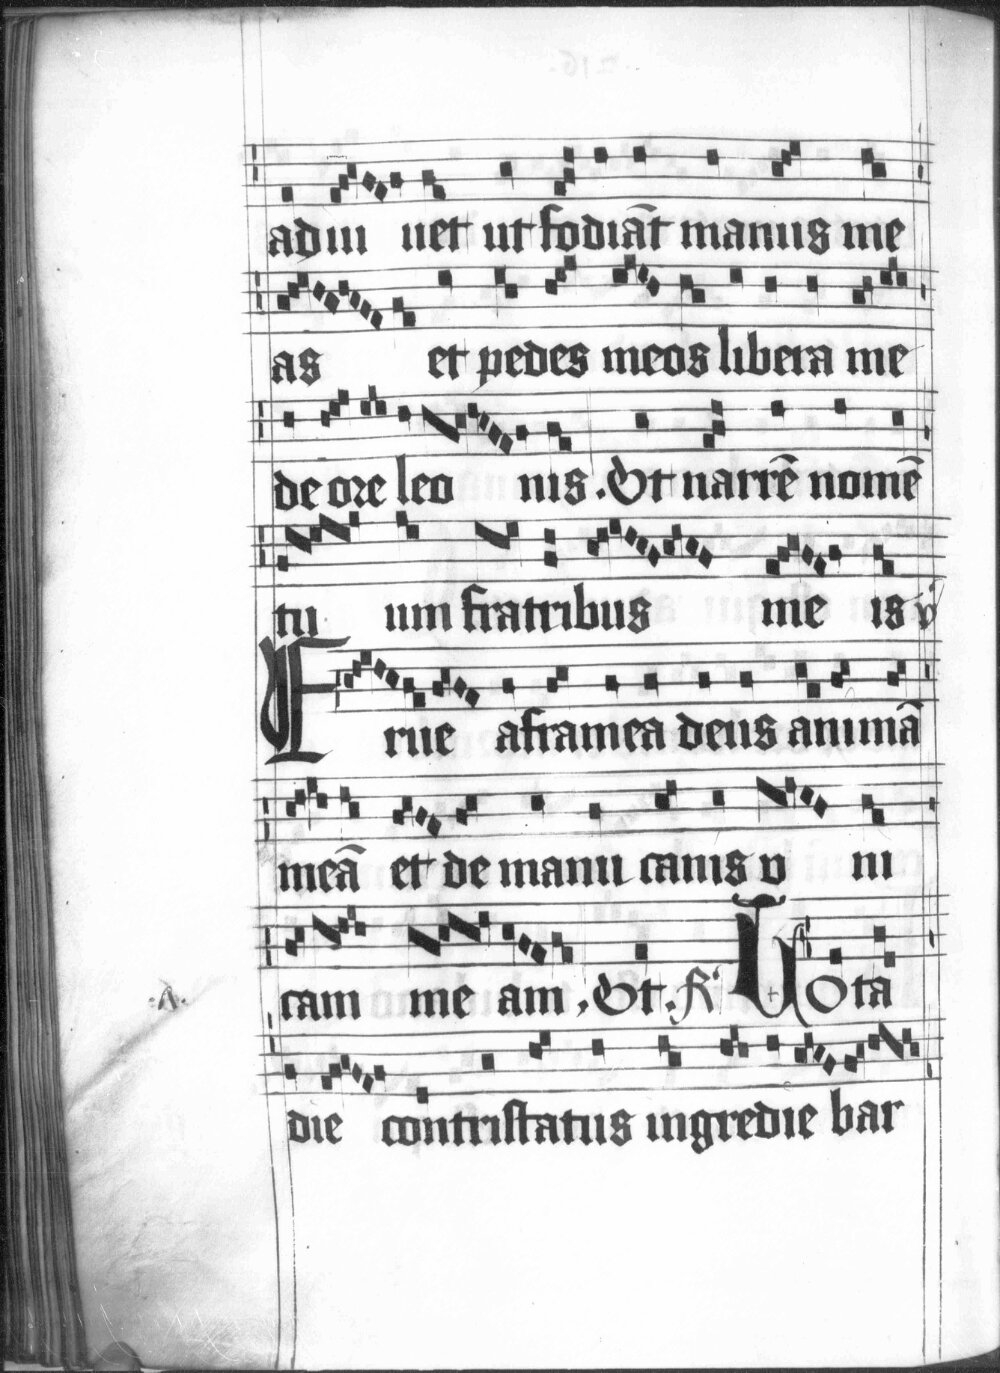 adiu uet ut fodiāt manus me
as et pedes meos libera me
de ore leo nis . Et narrē nomē
tu um fratribus me is v̇
Erue a framea deus animā
meā et de manu canis v ni
cam me am , Et . R̃ Tota
.A.
die contristatus ingredie bar